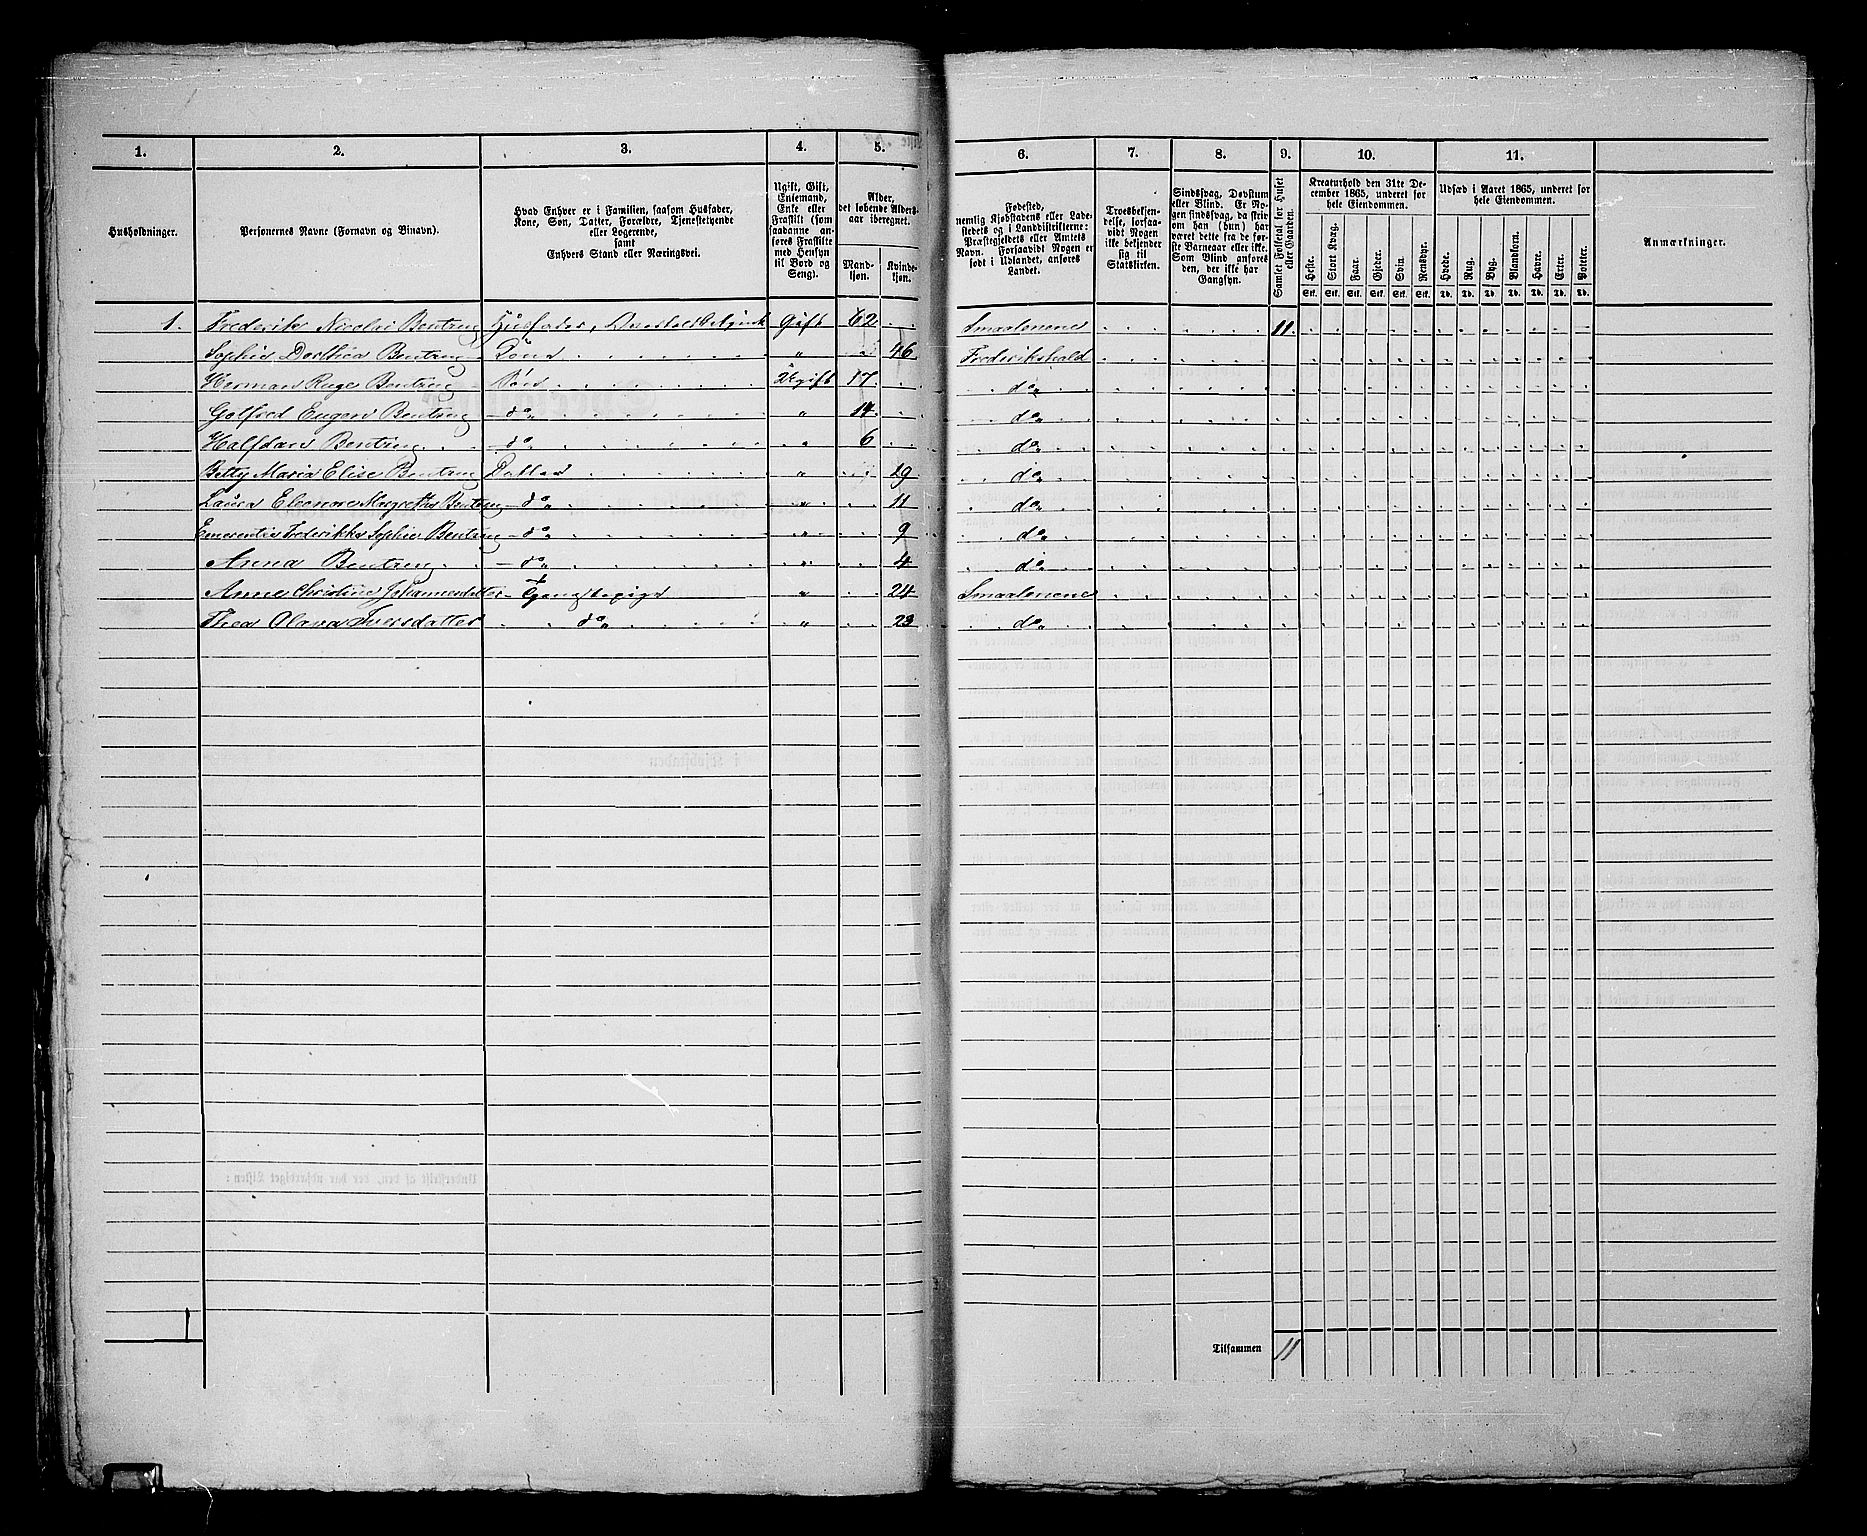 1. 2. 3. 4. 5. 6. 7. 8. 9. 10. 11.
Husholdninger.
Personernes Navne (Fornavn og Binavn).
Hvad Enhver er i Familien, saasom Husfader,
Kone, Søn, Datter, Forældre, Tjenestetyende
eller Logerende,
samt
Enhvers Stand eller Næringsvei.
Ugift, Gift,
Enkemand,
Enke eller
Fraskilt (som
saadanne an-
føres Fraskilte
med Hensyn
til Bord og
Seng).
Alder,
det løbende Alders-
aar iberegnet.
Mand-
kjøn.
Kvinde-
kjøn.
Fødested,
nemlig Kjøbstadens eller Lade-
stedets og i Landdistrikterne:
Præstegjeldets eller Amtets
Navn. Forsaavidt Nogen er
født i Udlandet, anføres
Landet.
Troesbekjen-
delse, forsaa-
vidt Nogen
ikke bekjender
sig til
Statskirken.
Sindssvag, Døvstum
eller Blind. Er No-
gen sindssvag, da skriv
om han (hun) har
været dette fra de før-
ste Barneaar eller ikke.
Som Blind anføres
den, der ikke har
Gangsyn.
Samlet Folketal for Huset
eller Gaarden.
Kreaturhold den 31te De-
cember 1865, underet for
hele Eiendommen.
Heste. Stort Kvæg. Faar. Gjeder. Svin. Rensdyr.
Stk. Stk. Stk. Stk. Stk. Stk.
Udsæd i Aaret 1865, underet for
hele Eiendommen.
Hvede. Rug. Byg. Blandkorn. Havre. Erter. Poteter.
Td. Td. Td. Td. Td. Td. Td.
Anmærkninger.
1. Frederik Nicolai Bentzen Husfader, gift 62 Smaalenene 11.
Sophie Dorthea Bentzen Kone „ 46 Frederikshald
Herman Ruge Bentzen Søn Ugift 17 do
Eugen Bentzen do „ 14 do
Halfdan Bentzen do „ 6 do
Betty Maria Elise Bentzen Datter „ 19 do
Laura Eleonore Margrethe Bentzen do „ 11 do
Emerentia Frederikke Sophie Bentzen do „ 9 do
Anna Bentzen do „ 4 do
Anne Christine Johannesdatter „ 24 Smaalenene
Thea Olava Iversdatter do „ 23 do
1
Tilsammen 11